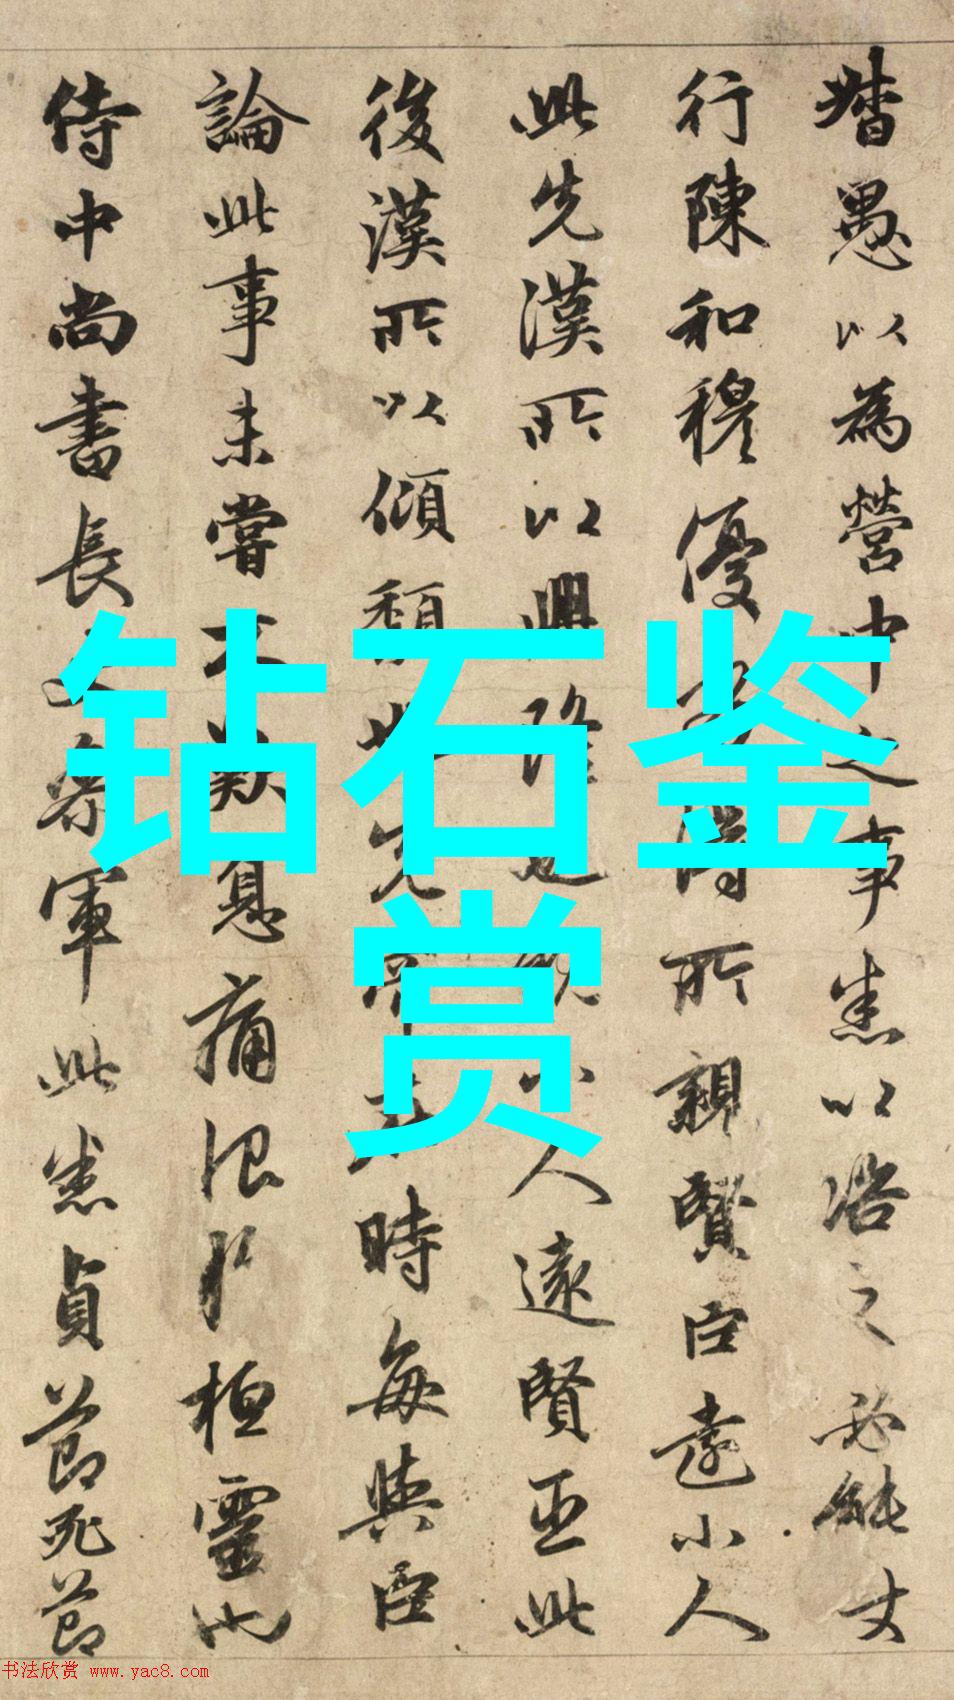 督愚以為營中之事悉以咨之必能
行陳和穆優劣得所親賢臣遠小人
此先漢所以興隆也親小人遠賢臣此
後漢所以傾頹也先帝在時每與臣
論此事未嘗不歎息痛恨於桓靈也
侍中尚書長史參軍此悉貞節死節
钻石鉴
赏
书法欣赏 www.yac8.com